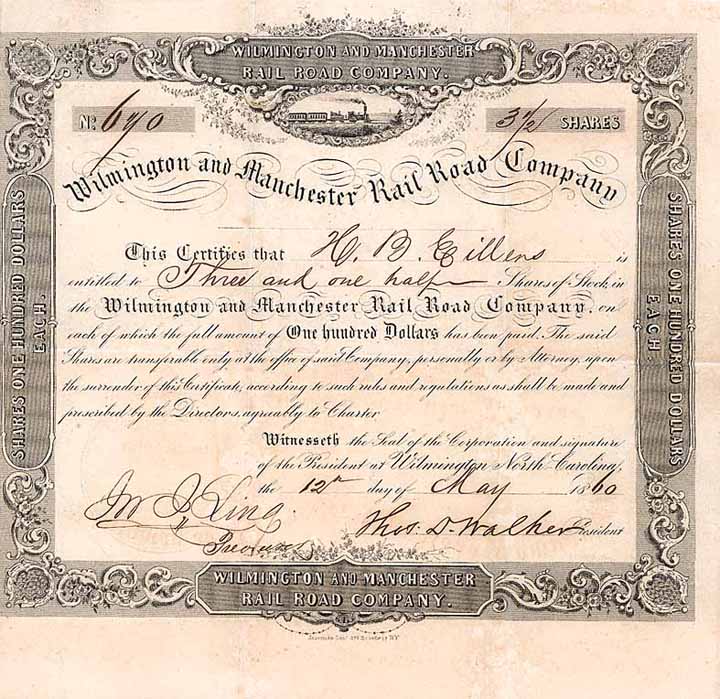 WILMINGTON AND MANCHESTER
RAIL ROAD COMPANY.
No. 690
3 1/2 SHARES
Wilmington and Manchester Rail Road Company
SHARES ONE HUNDRED DOLLARS
EACH.
This Certifies that H. B. Eillers is
entitled to Three and one half Shares of Stock in
the Wilmington and Manchester Rail Road Company, on
each of which the full amount of One hundred Dollars has been paid. The said
Shares are transferable only at the office of said Company, personally or by Attorney, upon
the surrender of this Certificate, according to such rules and regulations as shall be made and
prescribed by the Directors, agreably to Charter
Witnesseth the Seal of the Corporation and signature
of the President at Wilmington North Carolina,
the 12th day of May 1860
Thos. D. Walker President
SHARES ONE HUNDRED DOLLARS
EACH.
WILMINGTON AND MANCHESTER
RAIL ROAD COMPANY.